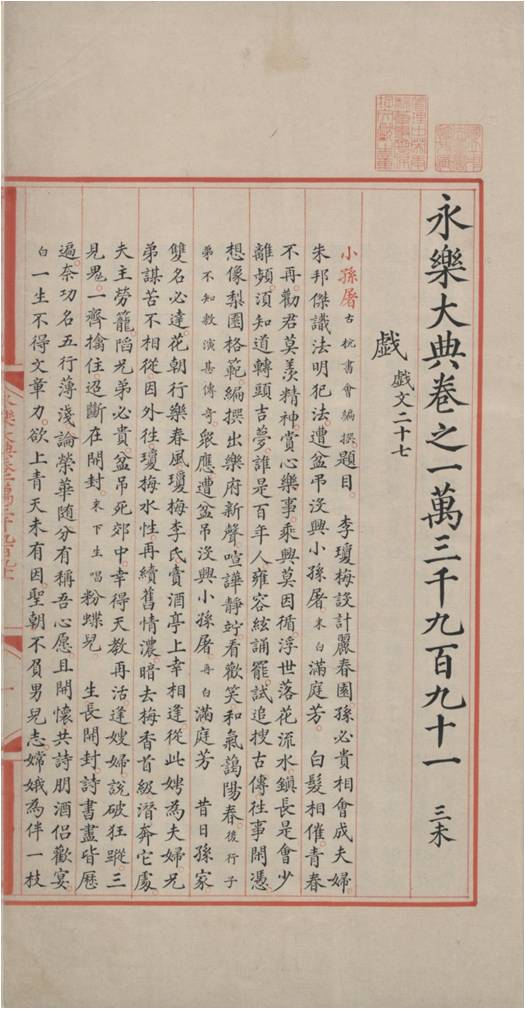 永樂大典卷之一萬三千九百九十一 三未
戲 戲文二十七
小孫屠 古杭書會編撰 題目 李瓊梅設計麗春園孫必貴相會成夫婦
朱邦傑識法明犯法遭盆吊沒興小孫屠 末白 滿庭芳 白髮相催青春
不再勸君莫羨精神賞心樂事乘興莫因循浮世落花流水鎮長是會少
離頻須知道轉頭吉夢誰是百年人雍容絃誦罷試追搜古傳往事閒憑
想像梨園格範編撰出樂府新聲喧譁靜竚看歡笑和氣藹陽春 後行子
弟不知敷演甚傳奇 衆應遭盆吊沒興小孫屠 再白 滿庭芳 昔日孫家
雙名必達花朝行樂春風瓊梅李氏賣酒亭上幸相逢從此娉為夫婦兄
弟謀苦不相從因外徃瓊梅水性再續舊情濃暗去梅香首級潛奔它處
夫主勞籠陷兄弟必貴盆吊死郊中幸得天教再活逢嫂婦說破狂蹤三
見鬼一齊擒住迢斷在開封 末下 生唱 粉蝶兒 生長開封詩書盡皆歷
遍奈功名五行薄淺論榮華隨分有稱吾心愿且開懷共詩朋酒侶歡宴
白 一生不得文章力欲上青天未有因聖朝不負男兒志嫦娥為伴一枝